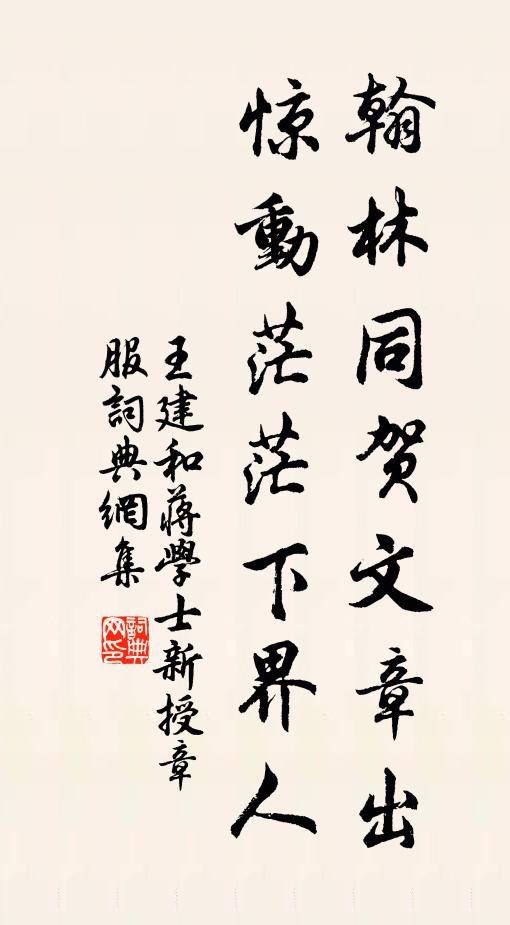 翰林同贺文章出
惊動茫茫下界人
王建和蔣學士新授章
服詞典網集
詞典
网印